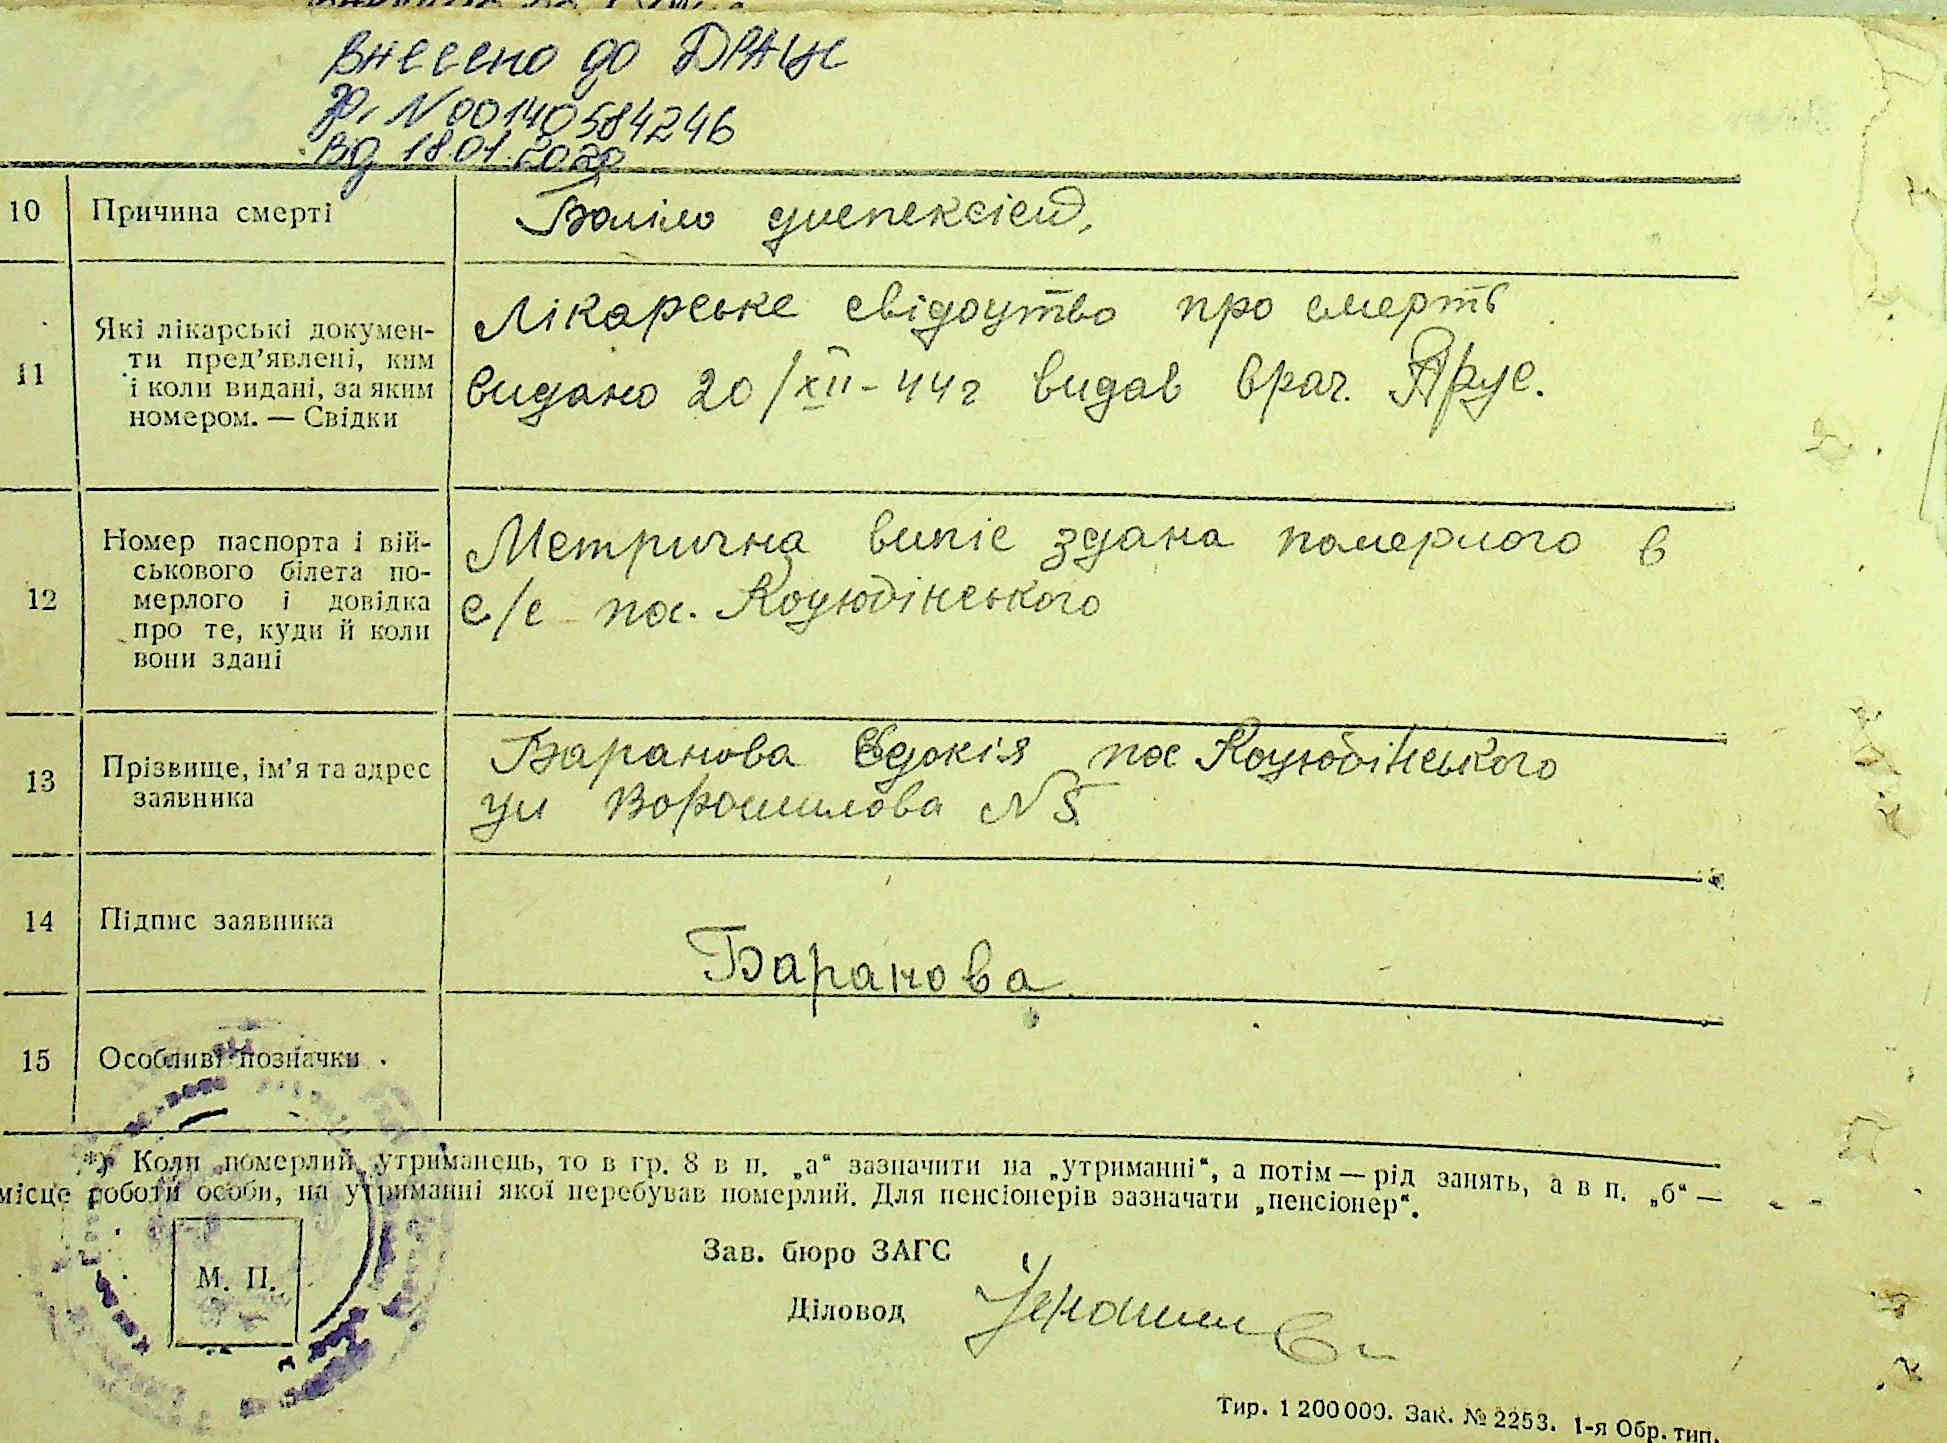 Внесено до ДРАЦС
Р. N 00140584246
Від 18.01.2020
10 Причина смерті Боліло диспексією,
11 Які лікарські докумен-
ти пред'явлені, ким
і коли видані, за яким
номером. — Свідки
Лікарське свідоцтво про смерть
видано 20/XII-44г видав врач.
12 Номер паспорта і вій-
ськового білета по-
мерлого і довідка
про те, куди й коли
вони здані
Метрична випіс здана померлого в
с/с пос. Коцюбінського
13 Прізвище, ім'я та адрес
заявника
Баранова Євдокія пос Коцюбінського
ул Ворошилова N 5
14 Підпис заявника
Баранова
15 Особливі позначки
*) Коли померлий утриманець, то в гр. 8 в п. „а“ зазначити на „утриманні“, а потім — рід занять, а в п. „б“ —
місце роботи особи, на утриманні якої перебував померлий. Для пенсіонерів зазначати „пенсіонер“.
М. П.
Зав. бюро ЗАГС
Діловод
Тир. 1 200 000. Зак. № 2253. 1-я Обр. тип.